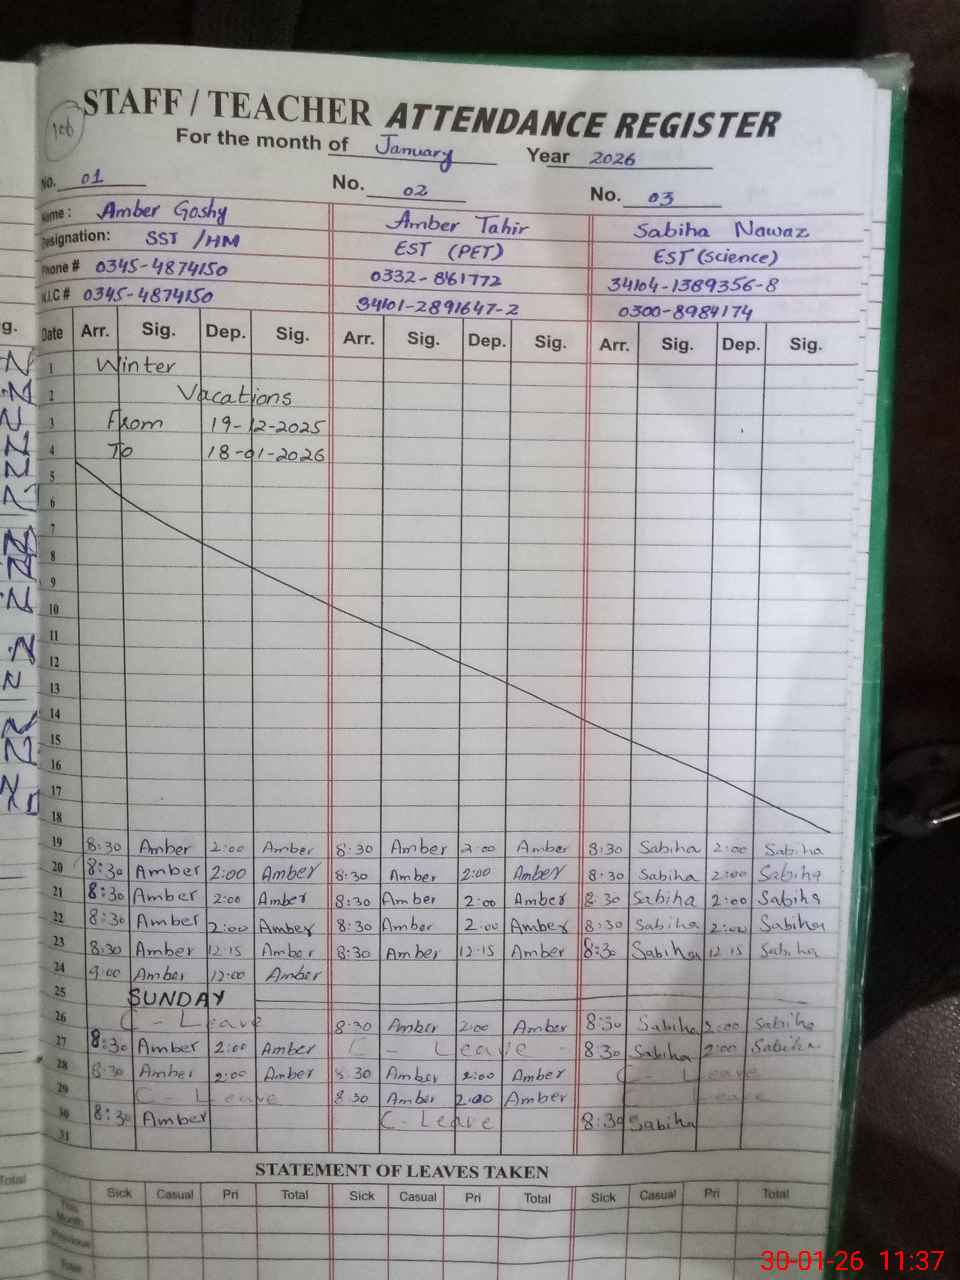 106
STAFF / TEACHER ATTENDANCE REGISTER
For the month of January Year 2026
No. 01 No. 02 No. 03
Name: Amber Goshy Amber Tahir Sabiha Nawaz
Designation: SST /HM EST (PET) EST (Science)
Phone # 0345-4874150 0332-861772 34104-1389356-8
N.I.C # 0345-4874150 34101-2891647-2 0300-8984174
Date Arr. Sig. Dep. Sig. Arr. Sig. Dep. Sig. Arr. Sig. Dep. Sig.
1 Winter
2 Vacations
3 From 19-12-2025
4 To 18-01-2026
5
6
7
8
9
10
11
12
13
14
15
16
17
18
19 8:30 Amber 2:00 Amber 8:30 Amber 2:00 Amber 8:30 Sabiha 2:00 Sabiha
20 8:30 Amber 2:00 Amber 8:30 Amber 2:00 Amber 8:30 Sabiha 2:00 Sabiha
21 8:30 Amber 2:00 Amber 8:30 Amber 2:00 Amber 8:30 Sabiha 2:00 Sabiha
22 8:30 Amber 2:00 Amber 8:30 Amber 2:00 Amber 8:30 Sabiha 2:00 Sabiha
23 8:30 Amber 12:15 Amber 8:30 Amber 12:15 Amber 8:30 Sabiha 12:15 Sabiha
24 9:00 Amber 12:00 Amber
25 SUNDAY
26 C - Leave 8:30 Amber 2:00 Amber 8:30 Sabiha 2:00 Sabiha
27 8:30 Amber 2:00 Amber C - Leave - 8:30 Sabiha 2:00 Sabiha
28 8:30 Amber 2:00 Amber 8:30 Amber 2:00 Amber C - Leave
29 C - Leave 8:30 Amber 2:00 Amber Leave
30 8:30 Amber C - Leave 8:30 Sabiha
31
STATEMENT OF LEAVES TAKEN
Sick Casual Pri Total Sick Casual Pri Total Sick Casual Pri Total
This Month
Previous
Total
30-01-26 11:37